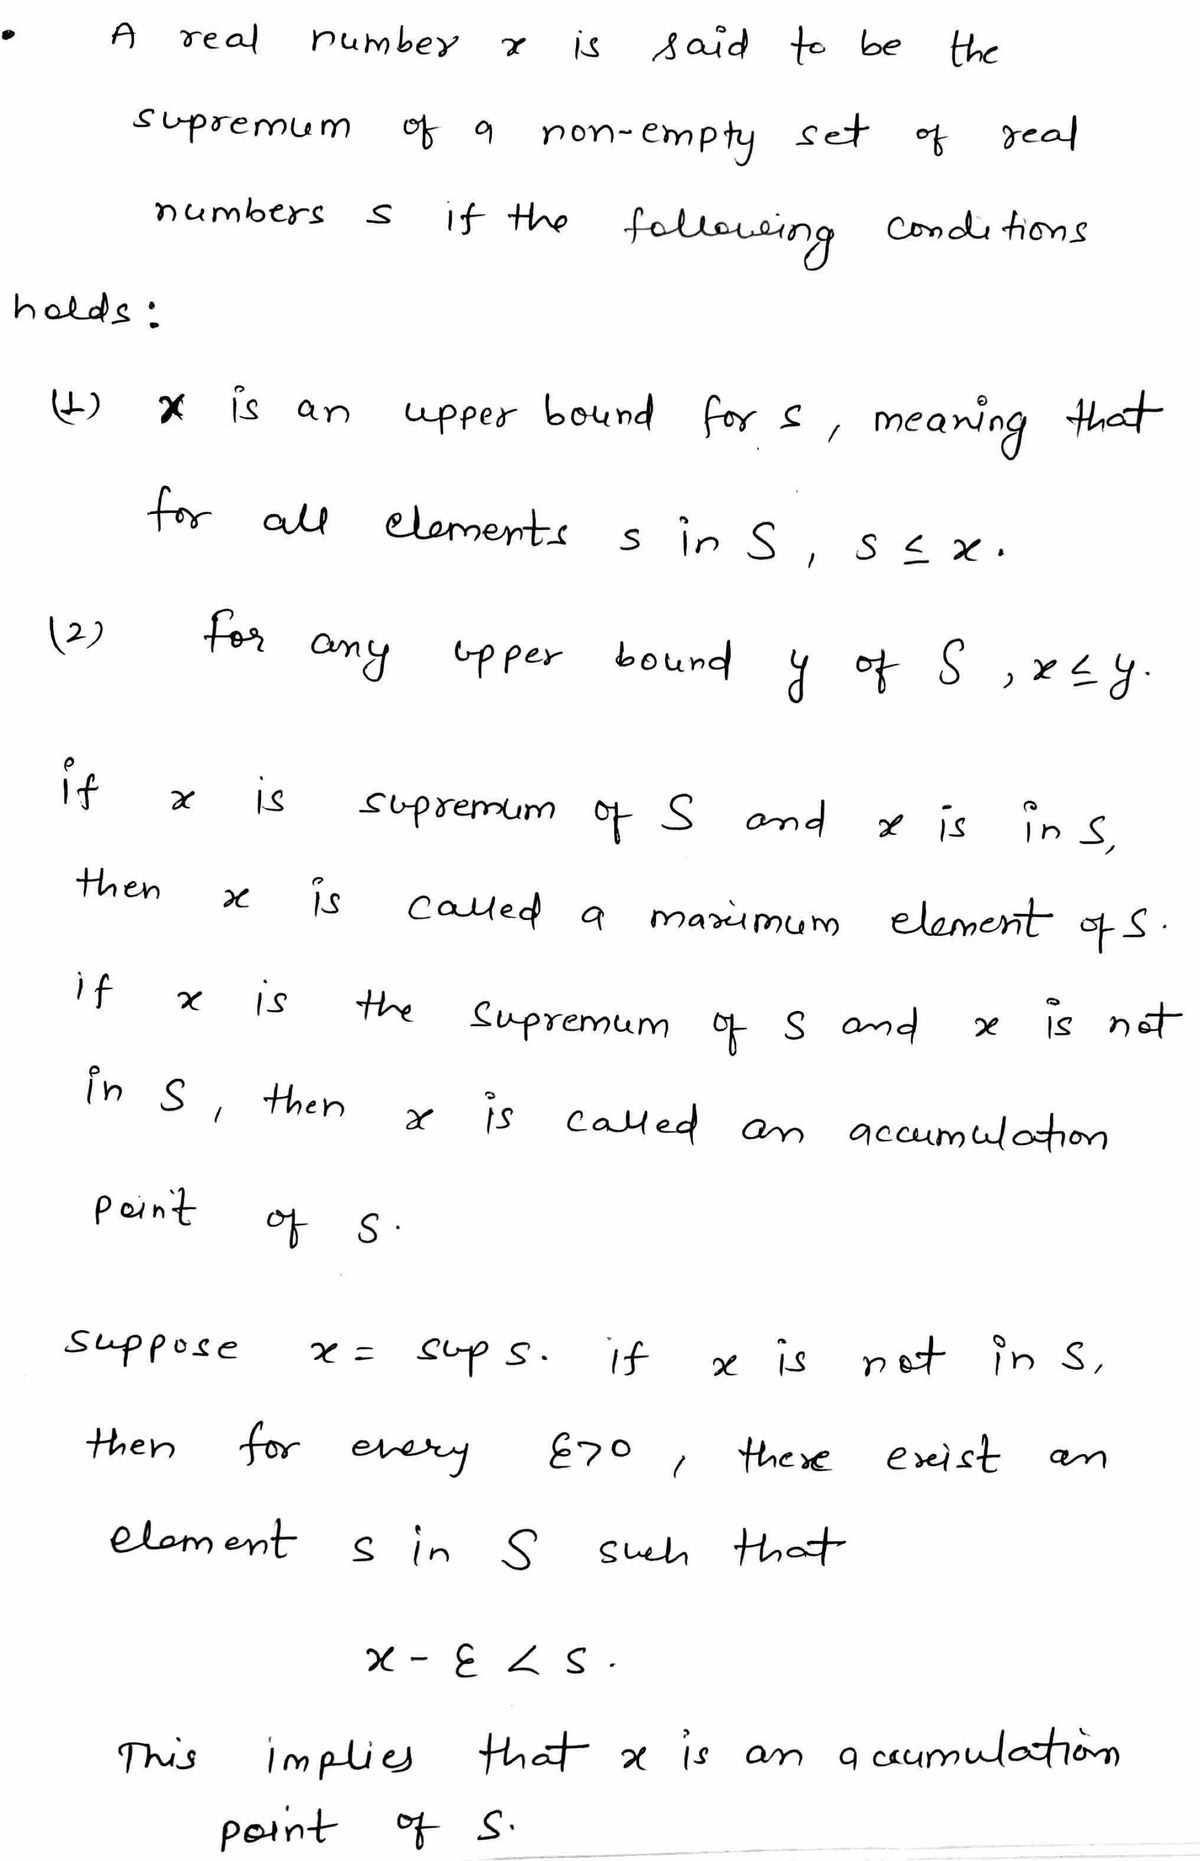 • A real number x is said to be the
supremum of a non-empty set of real
numbers S if the following conditions
holds :
(1) x is an upper bound for S, meaning that
for all elements s in S, s ≤ x.
(2) for any upper bound y of S, x ≤ y.
if x is supremum of S and x is in S,
then x is called a maximum element of S.
if x is the supremum of S and x is not
in S, then x is called an accumulation
point of S.
suppose x = sup S. if x is not in S,
then for every ε>0, there exist an
element s in S such that
x - ε < s.
This implies that x is an accumulation
point of S.